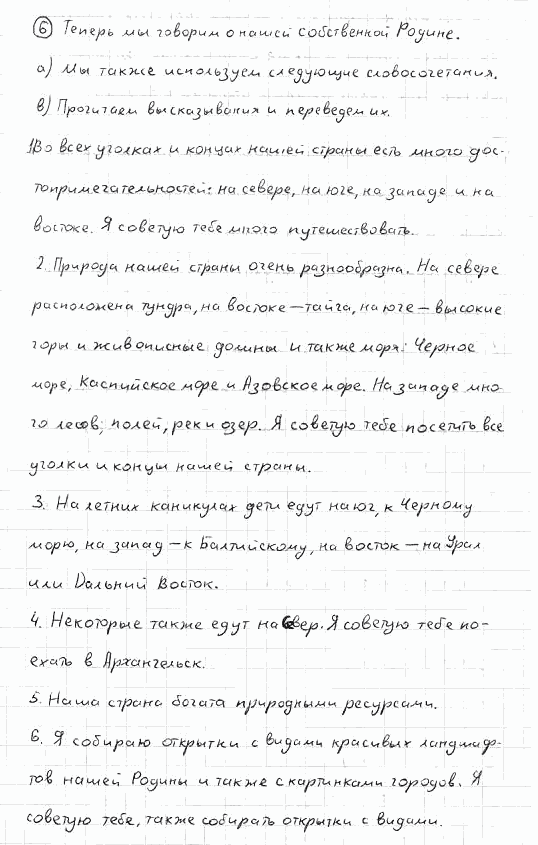 6 Теперь мы говорим о нашей собственной Родине.
а) Мы также используем следующие словосочетания.
в) Прочитаем высказывания и переведем их.
1. Во всех уголках и концах нашей страны есть много дос-
топримечательностей: на севере, на юге, на западе и на
востоке. Я советую тебе много путешествовать.
2. Природа нашей страны очень разнообразна. На севере
расположена тундра, на востоке – тайга, на юге – высокие
горы и живописные долины и также моря: Черное
море, Каспийское море и Азовское море. На западе мно-
го лесов, полей, рек и озер. Я советую тебе посетить все
уголки и концы нашей страны.
3. На летних каникулах дети едут на юг, к Черному
морю, на запад – к Балтийскому, на восток – на Урал
или Дальний Восток.
4. Некоторые также едут на север. Я советую тебе по-
ехать в Архангельск.
5. Наша страна богата природными ресурсами.
6. Я собираю открытки с видами красивых ландшаф-
тов нашей Родины и также с картинками городов. Я
советую тебе, также собирать открытки с видами.